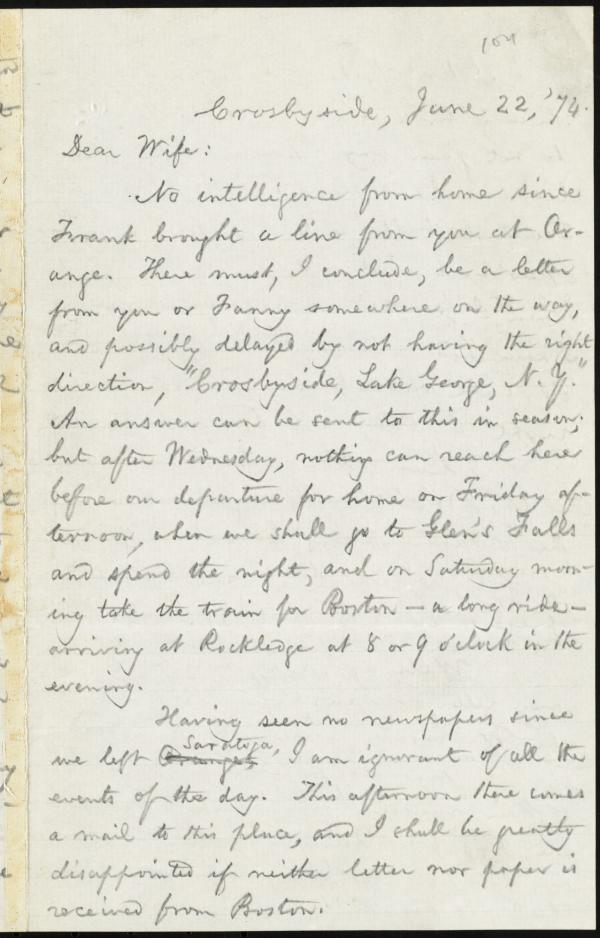 104
Crosbyside, June 22, '74.
Dear Wife:
No intelligence from home since
Frank brought a line from you at Or-
ange. There must, I conclude, be a letter
from you or Fanny somewhere on the way,
and possibly delayed by not having the right
direction, "Crosbyside, Lake George, N. Y."
An answer can be sent to this in season;
but after Wednesday, nothing can reach here
before our departure for home on Friday af-
ternoon, when we shall go to Glen's Falls
and spend the night, and on Saturday morn-
ing take the train for Boston — a long ride —
arriving at Rockledge at 8 or 9 o'clock in the
evening.
Having seen no newspapers since
we left Orange, Saratoga, I am ignorant of all the
events of the day. This afternoon there comes
a mail to this place, and I shall be greatly
disappointed if neither letter nor paper is
received from Boston.